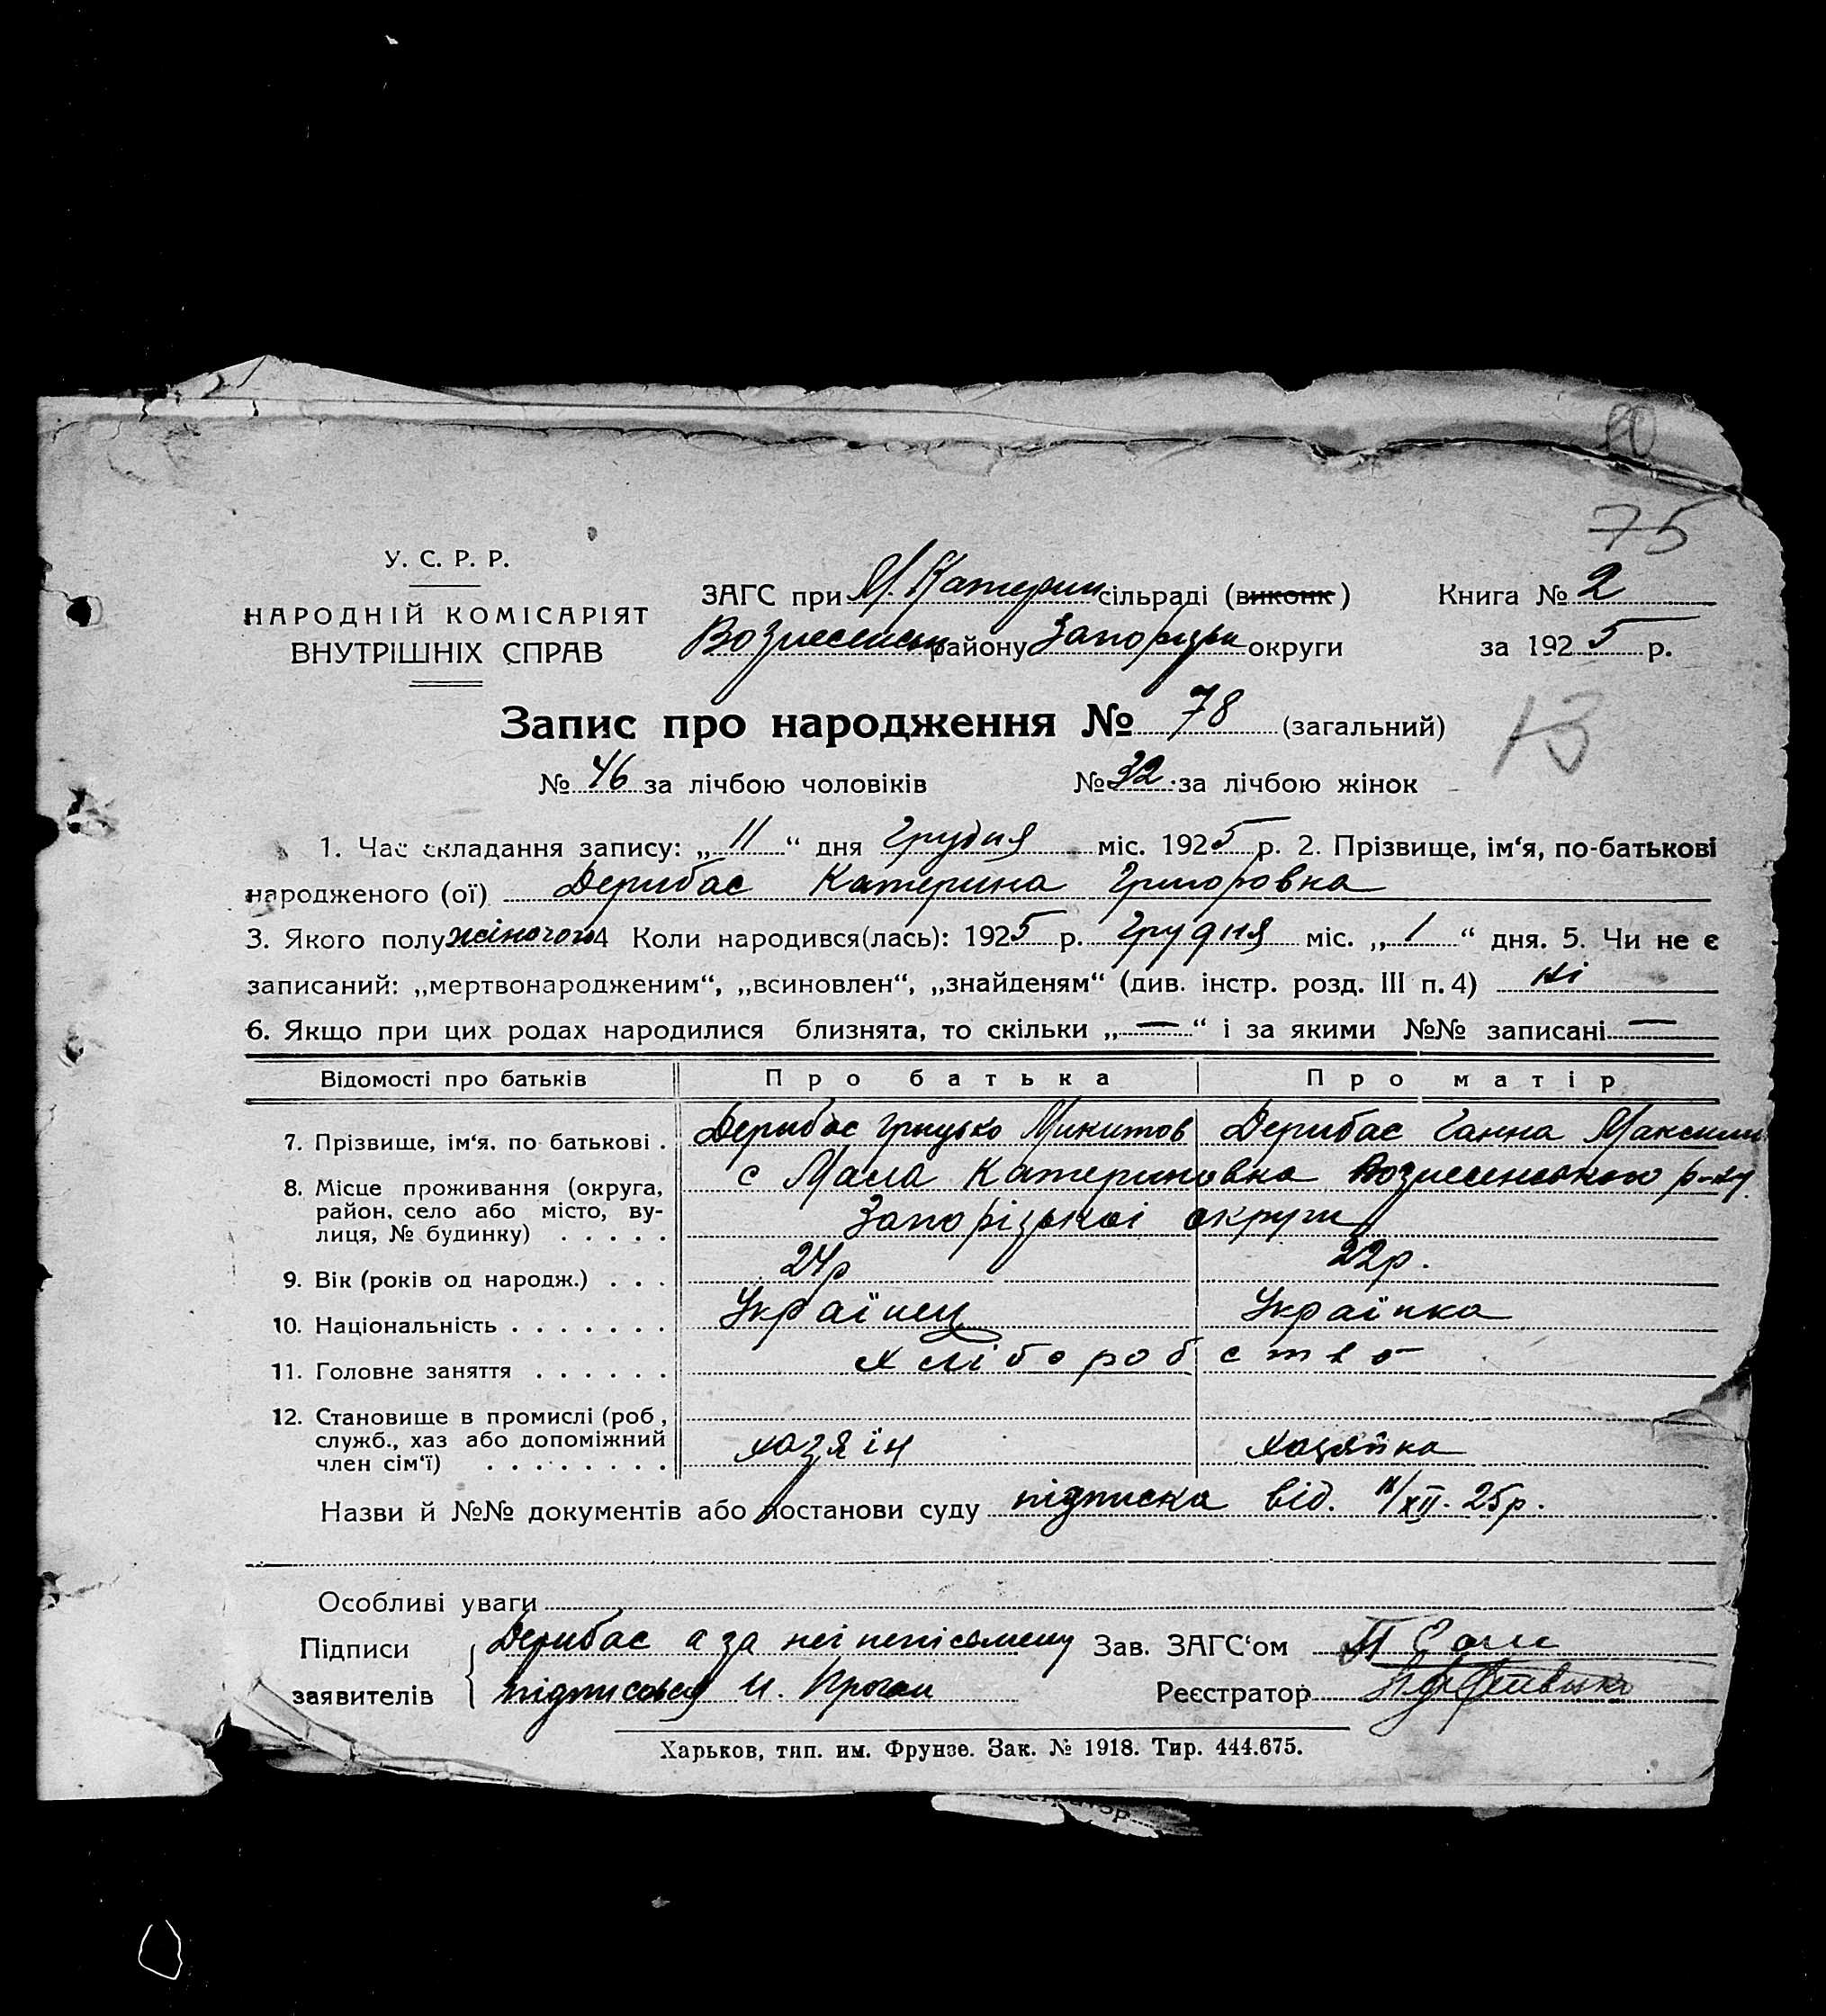 75
У. С. Р. Р.
НАРОДНІЙ КОМІСАРІЯТ
ВНУТРІШНІХ СПРАВ
ЗАГС при М. Катерин сільраді (виконк) Книга № 2
Вознесенськ району Запорізьк округи за 1925 р.
Запис про народження № 78 (загальний)
13
№ 46 за лічбою чоловіків № 32 за лічбою жінок
1. Час складання запису: „11“ дня Грудня міс. 1925 р. 2. Прізвище, ім‘я, по-батькові
народженого (ої) Дерибас Катерина Григоровна
3. Якого полу жіночого 4 Коли народився(лась): 1925 р. Грудня міс. „1“ дня. 5. Чи не є
записаний: „мертвонародженим“, „всиновлен“, „знайденям“ (див. інстр. розд. III п. 4) ні
6. Якщо при цих родах народилися близнята, то скільки „—“ і за якими №№ записані —
Відомості про батьків Про батька Про матір
7. Прізвище, ім‘я, по батькові . Дерибас Грицько Микитов Дерибас Ганна Максим
8. Місце проживання (округа, район, село або місто, вулиця, № будинку) . . . . . с Мала Катериновка Вознесенського р-ну
Запорізької округи
9. Вік (років од народж.) . . . 24р 22р.
10. Національність . . . . . . . Українец Українка
11. Головне заняття . . . . . . Хліборобство
12. Становище в промислі (роб, служб., хаз або допоміжний член сім‘ї) . . . . . . . . хазяїн хазяйка
Назви й №№ документів або постанови суду підписка від. 11/XII. 25р.
Особливі уваги
Підписи Дерибас а за неї неписьмену Зав. ЗАГС‘ом
заявителів підписався И. Реєстратор
Харьков, тип. им. Фрунзе. Зак. № 1918. Тир. 444.675.